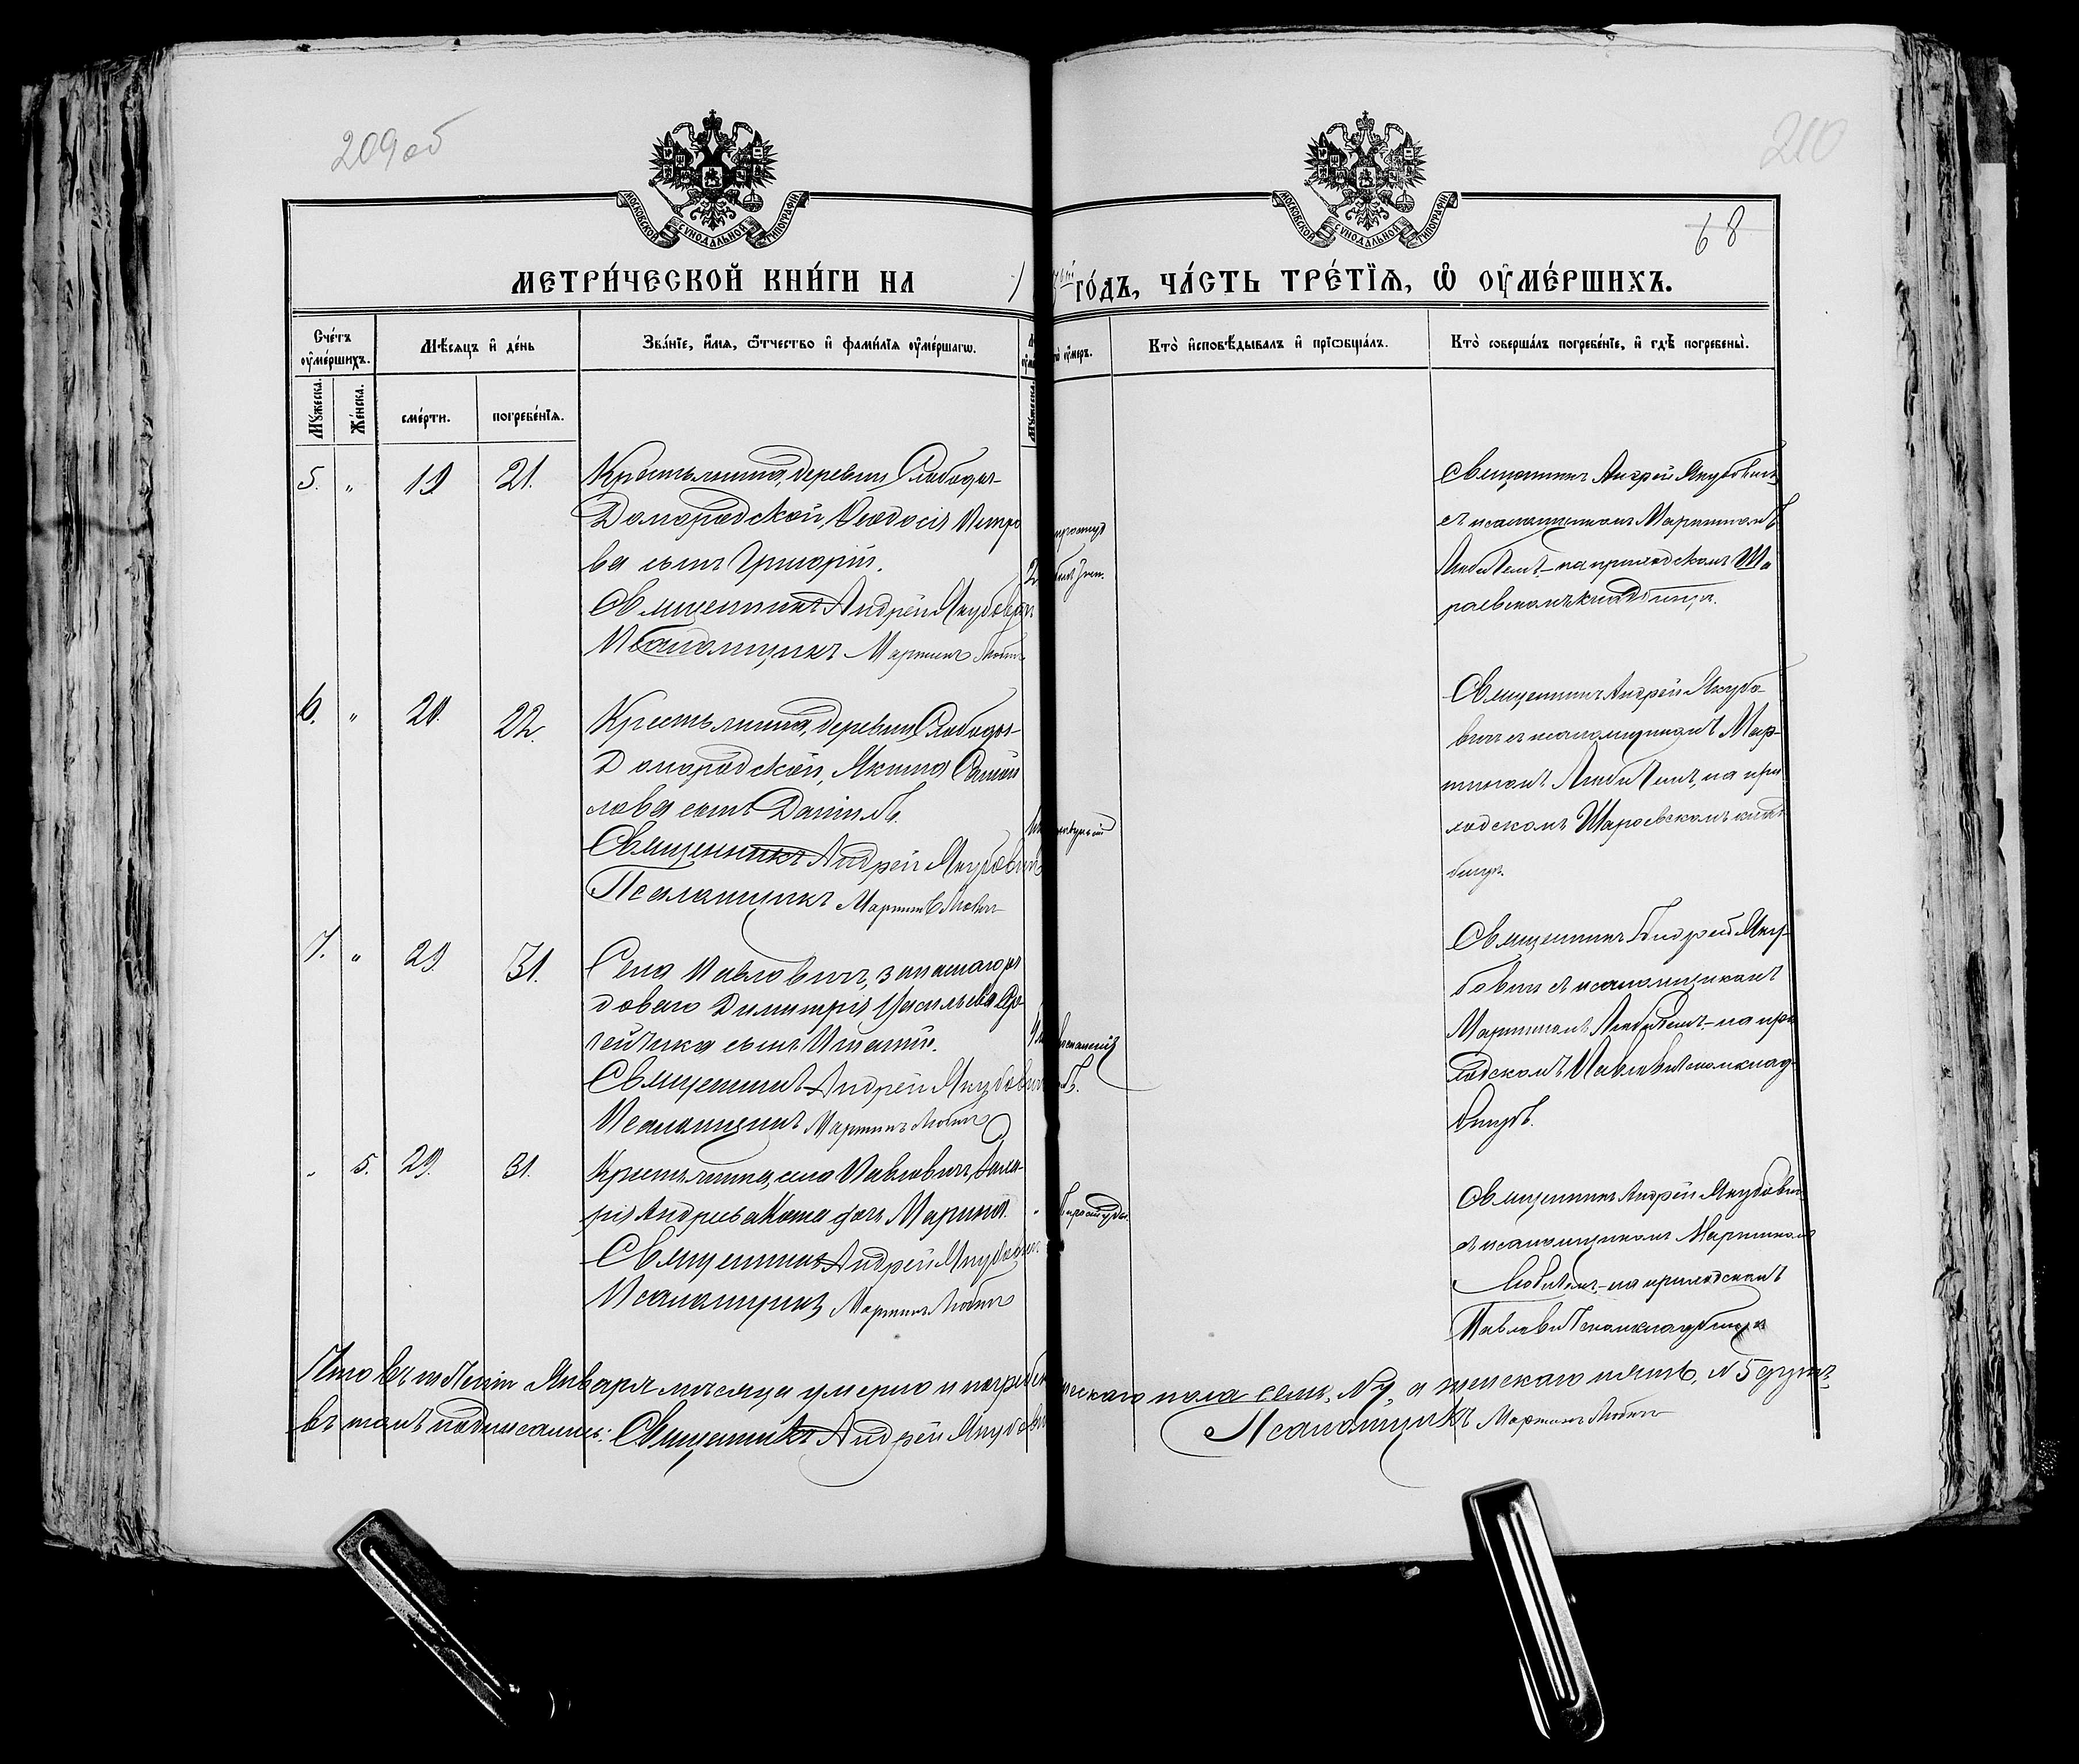 209об
210
68
МОСКОВСКОЙ СѴНОДАЛЬНОЙ ТИПОГРАФІИ
МОСКОВСКОЙ СѴНОДАЛЬНОЙ ТИПОГРАФІИ
МЕТРИ́ЧЕСКОЙ КНИ́ГИ НА 1
ГО́ДЪ, ЧА́СТЬ ТРЕ́ТЇѦ, Ѡ҆ ОУ҆МЕ́РШИХЪ.
Сче́тъ оу҆ме́ршихъ.
Мѣ́сяцъ и҆ де́нь
Зва́нїе, и҆́мя, ѻ҆́тчество и҆ фами́лїя оу҆ме́ршагѡ.
оу҆́меръ.
Кто̀ и҆сповѣ́дывалъ и҆ прїѡбща́лъ.
Кто̀ соверша́лъ погребе́нїе, и҆ гдѣ̀ погребены̀.
Мꙋ́жеска.
Же́нска.
сме́рти.
погребе́нїя.
5. " 19 21. Крестьянина, деревни Слободы-
Доморадской, Ѳеодосія Петро
ва сынъ Григорій.
Священникъ Андрей Якубович
Псаломщикъ Мартинъ Любич
Священникъ Андрей Якубович
съ псаломщикомъ Мартиномъ
Любичемъ,-на приходскомъ Ша
раевскомъ кладбище.
6. " 20. 22. Крестьянина, деревни Слободы-
Доморадской, Якима Самой
лова сынъ Даніилъ.
Священникъ Андрей Якубович
Псаломщикъ Мартинъ Любич
Священникъ Андрей Якубо
вич съ псаломщикомъ Мар-
тиномъ Любичемъ, на при
ходскомъ Шараевскомъ клад
бище.
7. " 29. 31. Села Павлович, запаснаго ря
доваго Димитрія Васильева
сынъ Игнатій.
Священникъ Андрей Якубович
Псаломщикъ Мартинъ Любич
Священникъ Андрей Яку-
бович съ псаломщикомъ
Мартиномъ Любичемъ,-на при
ходскомъ Павловичскомъ клад-
бищѣ.
" 5. 29. 31. Крестьянина, села Павлович, Заха-
рія Андреева дочь Марина.
простуды
Священникъ Андрей Якубович
Псаломщикъ Мартинъ Любич
Священникъ Андрей Якубович
съ псаломщикомъ Мартиномъ
Любичемъ,-на приходскомъ
Павловичскомъ кладбище
Что въ теченіи Января мѣсяца умерло и погребе ческаго пола семь, №7, а женскаго пять, №5 душъ,
въ томъ подписались: Священникъ Андрей Якубович Псаломщикъ Мартинъ Любич